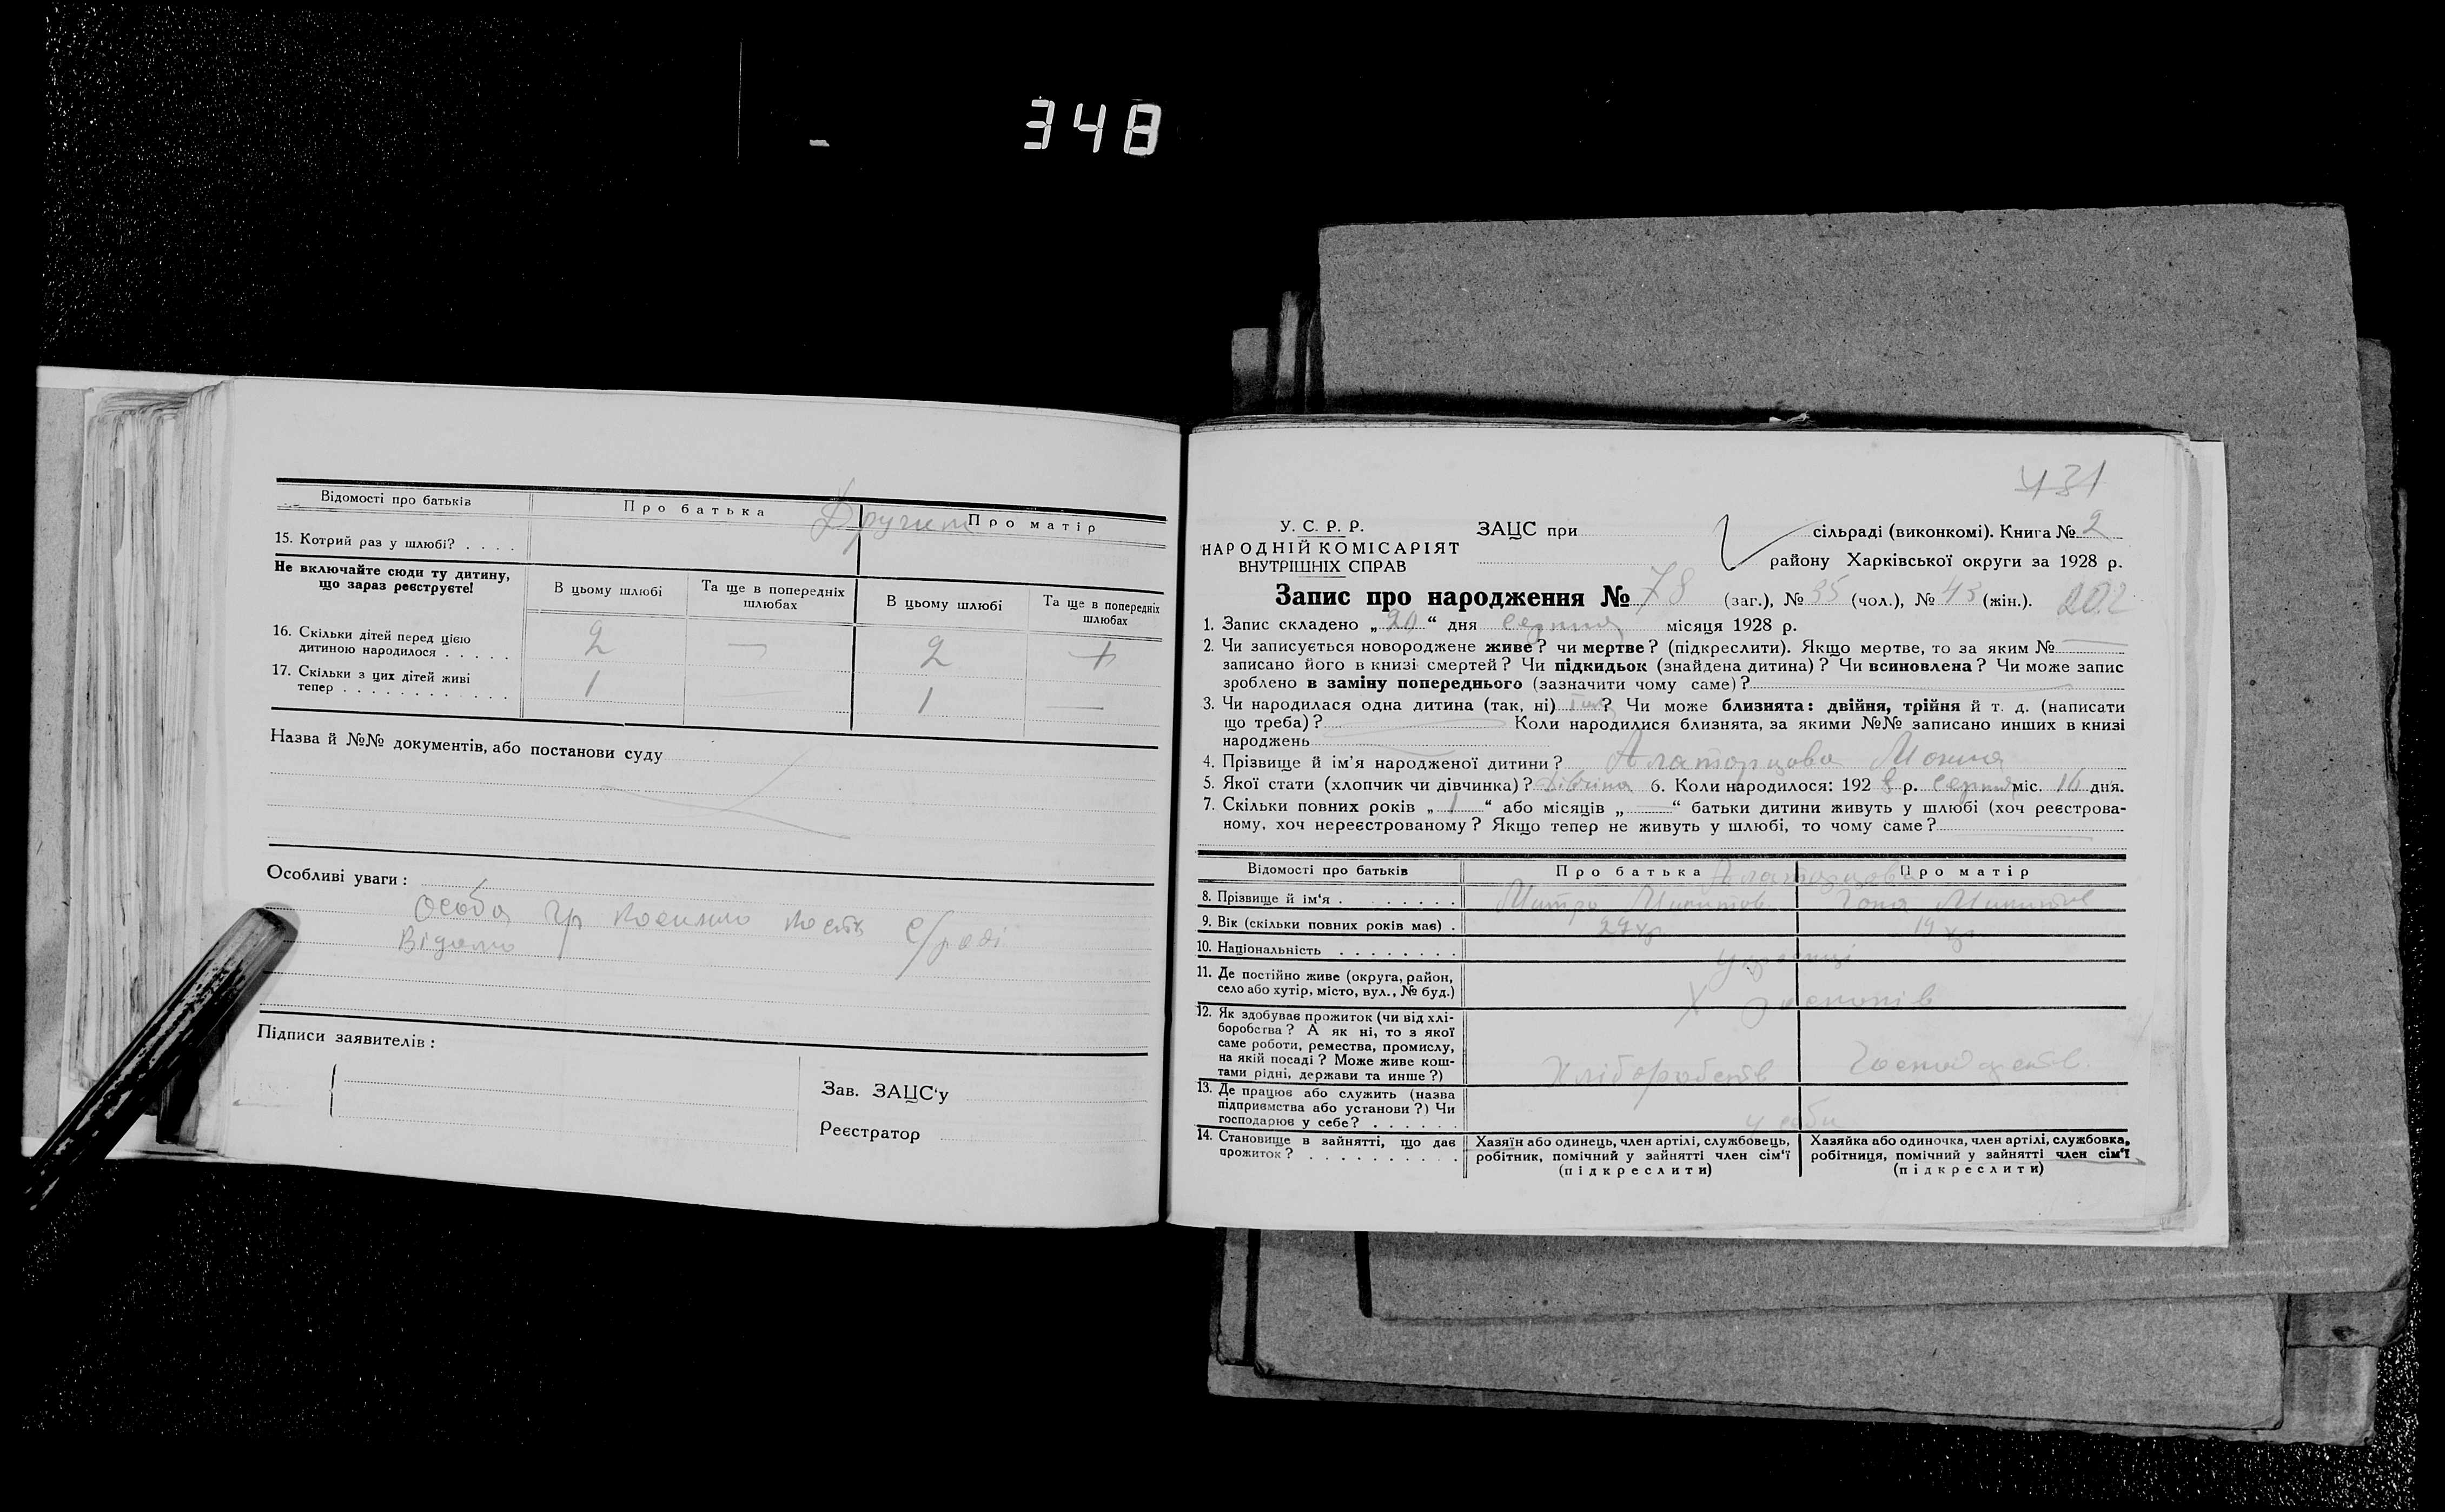 348
Відомості про батьків
Про батька
Про матір
15. Котрий раз у шлюбі? . . . .
Не включайте сюди ту дитину,
що зараз реєструєте!
В цьому шлюбі
Та ще в попередніх
шлюбах
В цьому шлюбі
Та ще в попередніх
шлюбах
16. Скільки дітей перед цією
дитиною народилося . . . . . 2 — 2
17. Скільки з цих дітей живі
тепер . . . . . . . . . . . . 1 1 —
Назва й №№ документів, або постанови суду
Особливі уваги:
Особа гр
Відомо с/раді
Підписи заявителів:
Зав. ЗАЦС'у
Реєстратор
431
У. С. Р. Р.
НАРОДНІЙ КОМІСАРІЯТ
ВНУТРІШНІХ СПРАВ
ЗАЦС при сільраді (виконкомі). Книга № 2
району Харківської округи за 1928 р.
Запис про народження № 78 (заг.), № 35 (чол.), № 43 (жін.). 202
1. Запис складено „20“ дня серпня місяця 1928 р.
2. Чи записується новороджене живе? чи мертве? (підкреслити). Якщо мертве, то за яким №
записано його в книзі смертей? Чи підкидьок (знайдена дитина)? Чи всиновлена? Чи може запис
зроблено в заміну попереднього (зазначити чому саме)?
3. Чи народилася одна дитина (так, ні) ? Чи може близнята: двійня, трійня й т. д. (написати
що треба)? Коли народилися близнята, за якими №№ записано инших в книзі
народжень
4. Прізвище й ім'я народженої дитини? Алаторцова
5. Якої стати (хлопчик чи дівчинка)? Дівчина 6. Коли народилося: 192 8 р. серпня міс. 16 дня.
7. Скільки повних років „1“ або місяців „—“ батьки дитини живуть у шлюбі (хоч реєстрова-
ному, хоч нереєстрованому? Якщо тепер не живуть у шлюбі, то чому саме?
Відомості про батьків
Про батька
Про матір
8. Прізвище й ім'я . . . . . . . . Митро
9. Вік (скільки повних років має) . 27 19
10. Національність . . . . . . . . Українці
11. Де постійно живе (округа, район,
село або хутір, місто, вул., № буд.)
12. Як здобуває прожиток (чи від хлі-
боробства? А як ні, то з якої
саме роботи, ремества, промислу,
на якій посаді? Може живе кош-
тами рідні, держави та инше?)
Хліборобств
13. Де працює або служить (назва
підприємства або установи?) Чи
господарює у себе? . . . . . . у себи
14. Становище в зайнятті, що дає
прожиток? . . . . . . . . . .
Хазяїн або одинець, член артілі, службовець,
робітник, помічний у зайнятті член сім'ї
(підкреслити)
Хазяйка або одиночка, член артілі, службовка,
робітниця, помічний у зайнятті член сім'ї
(підкреслити)